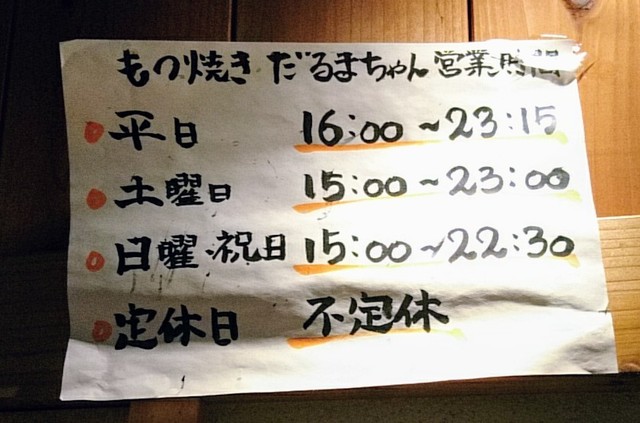 もつ焼き だるまちゃん 営業時間
平日 16:00~23:15
土曜日 15:00~23:00
日曜・祝日 15:00~22:30
定休日 不定休